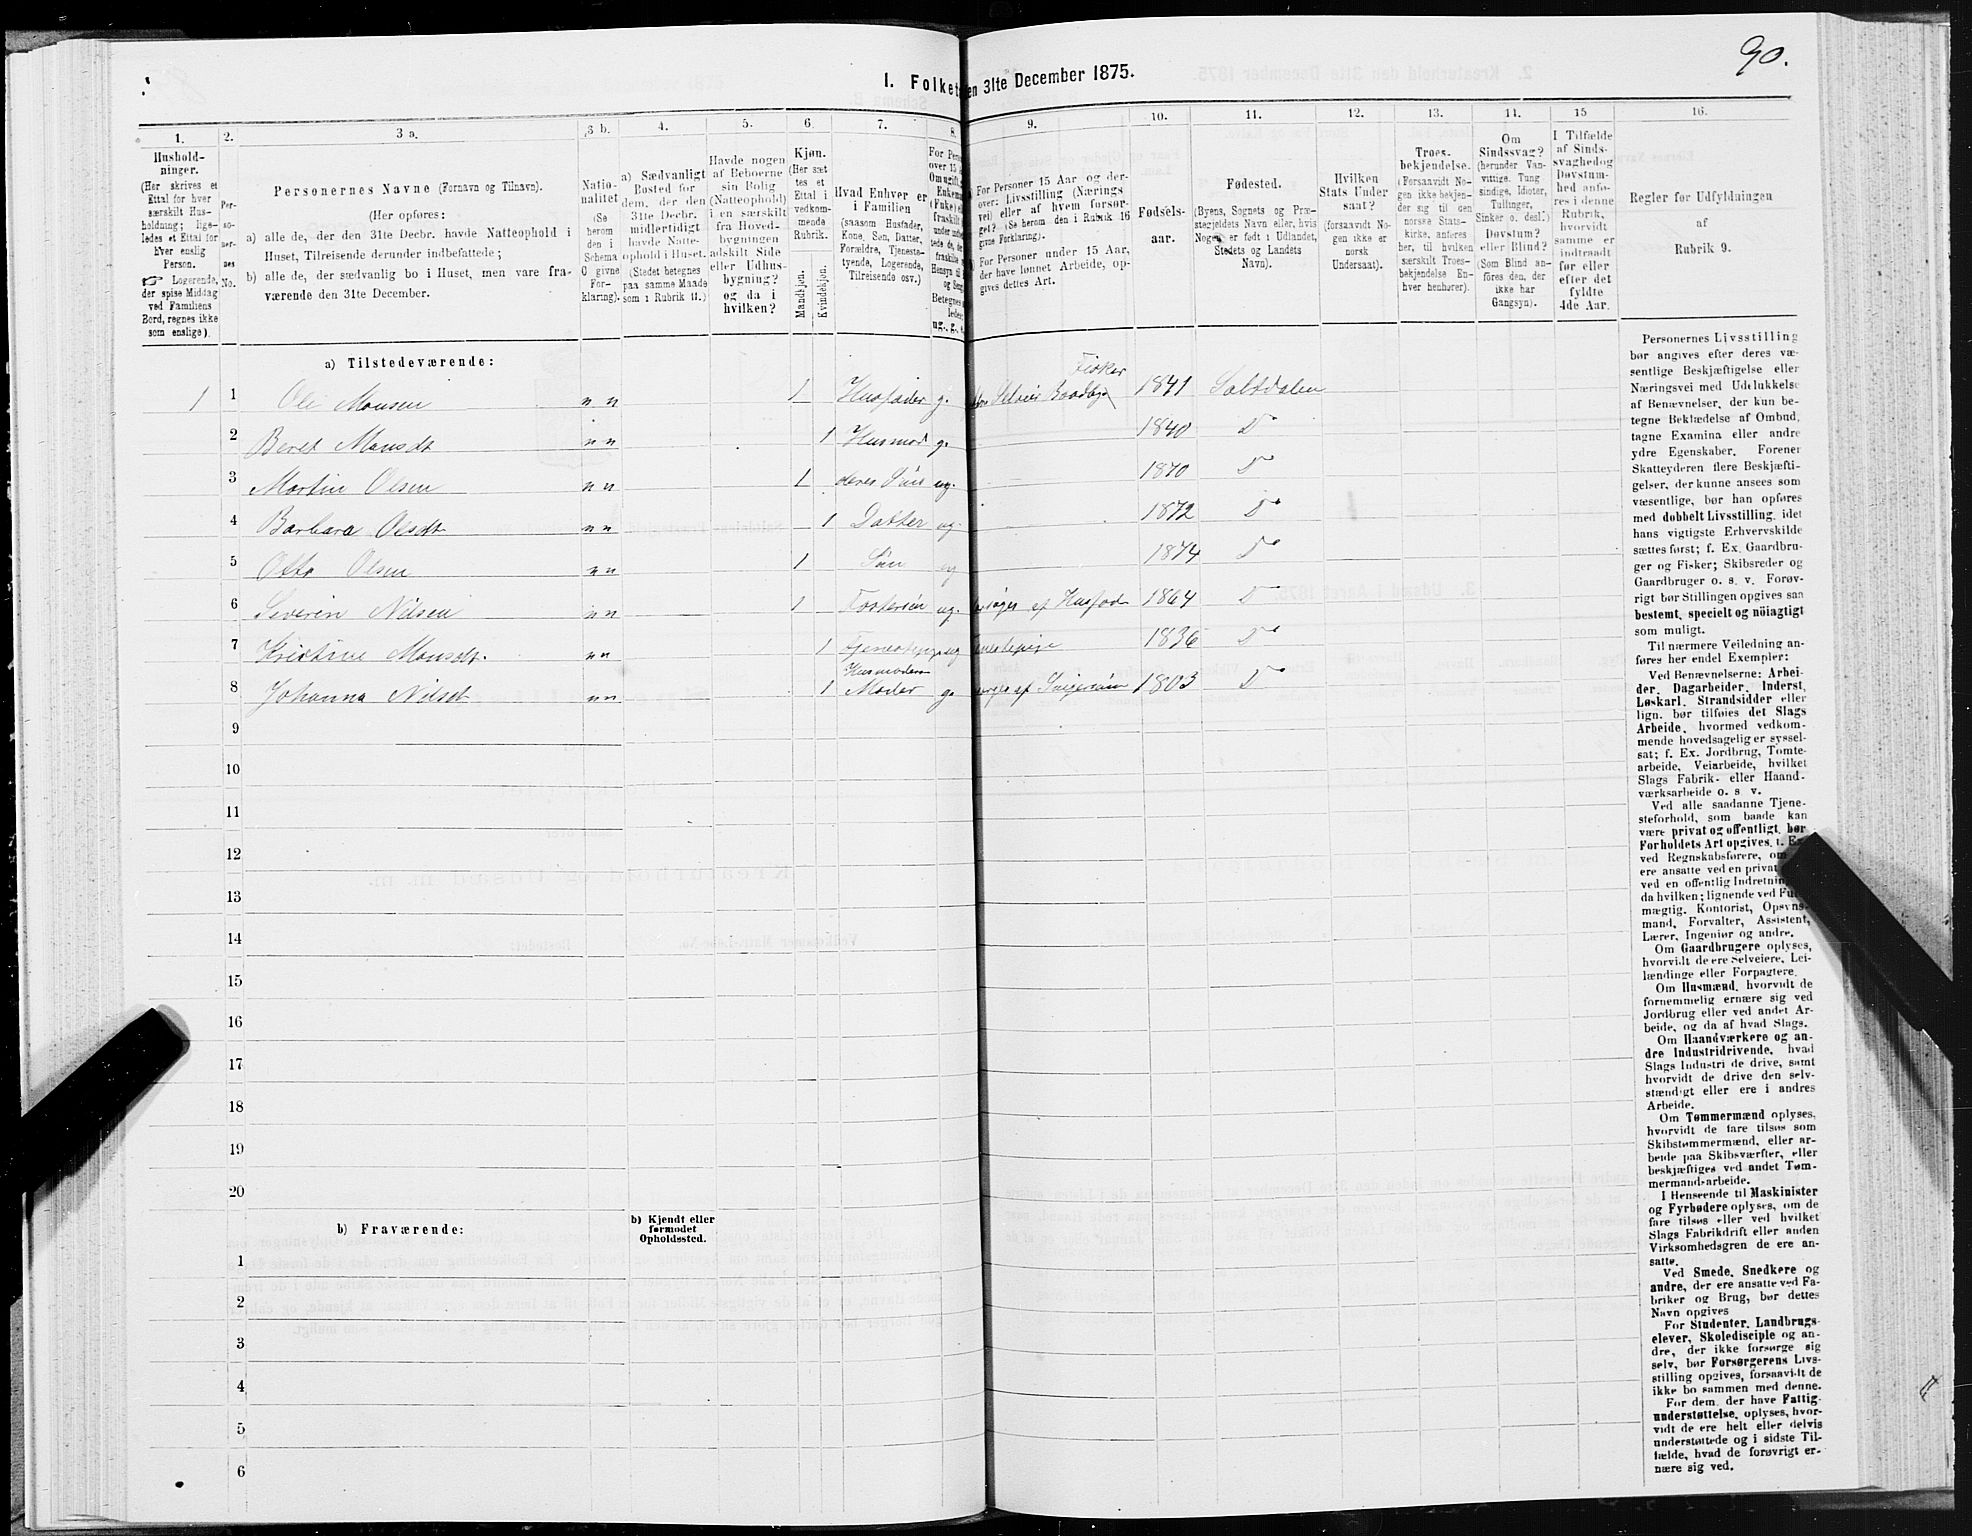 90.
I. Folket
en 31te December 1875.
1.
Hushold-
ninger.
(Her skrives et
Ettal for hver
særskilt Hus-
holdning; lige-
ledes et Ettal for
Hver enslig
Person.
Logerende,
der spise Middag
ved Familiens
Bord, regnes ikke
som enslige).
2.
Per-
so-
ner-
nes
No.
3 a.
Personernes Navne (Fornavn og Tilnavn).
(Her opføres:
a) alle de, der den 31te Decbr. havde Natteophold i
Huset, Tilreisende derunder indbefattede;
b) alle de, der sædvanlig bo i Huset, men vare fra-
værende den 31te December.
3 b.
Natio-
nalitet
(Se
herom
den i
Schema
O givne
For-
klaring).
4.
a) Sædvanligt
Bosted for
dem, der den
31te Decbr.
midlertidigt
havde Natte-
ophold i Huset.
(Stedet betegnes
paa samme Maade
som i Rubrik 11.)
5.
Havde nogen
af Beboerne
sin Bolig
(Natteophold)
i en særskilt
fra Hoved-
bygningen
adskilt Side
eller Udhus-
bygning?
og da i
hvilken?
6.
Kjøn.
(Her sæt
tes et
Ettal i
vedkom-
mende
Rubrik.
Mandkjøn.
Kvindekjøn.
7.
Hvad Enhver er
i Familien
(saasom Husfader,
Kone, Søn, Datter,
Forældre, Tjeneste-
tyende, Logerende,
Tilreisende osv.)
8.
For Pers
over 15
Om ugift,
Enkem
(Fnke)
fraskilt
9.
For Personer 15 Aar og der-
over: Livsstilling (Nærings
vei) eller af hvem forsør-
get? (Se herom den i Rubrik 16
givne Forklaring).
For Personer under 15 Aar,
der have lønnet Arbeide, op-
gives dettes Art.
10.
Fødsels-
aar.
11.
Fødested.
(Byens, Sognets og Præ-
stegjeldets Navn eller, hvis
Nogen er født i Udlandet,
Stedets og Landets
Navn).
12.
Hvilken
Stats Under
saat?
(forsaavidt No-
gen ikke er
norsk
Undersaat).
13.
Troes-
bekjendelse.
(Forsaavidt No-
gen ikke bekjen-
der sig til den
norske Stats-
kirke, anføres
her, til hvilken
særskilt Troes-
bekjendelse En-
hver henhører).
14.
Om
Sindssvag?
(herunder Van-
vittige, Tung
sindige, Idioter,
Tullinger,
Sinker o. desl.)
Døvstum?
eller Blind?
(Som Blind an-
føres den, der
ikke har
Gangsyn).
15
I Tilfælde
af Sinds-
svaghed og
Døvstum-
hed anfø-
res i denne
Rubrik,
hvorvidt
samme er
indtraadt
før eller
efter det
fyldte
4de Aar.
16.
Regler for Udfyldningen
af
Rubrik 9.
a) Tilstedeværende:
1 1 Ole Monsen n n 1 Husfader g. Selveier Baadbyg Fisker 1841 Saltdalen
2 Beret Monsdt n n 1 Husmod g. 1840 Do
3 Martin Olsen n n 1 deres Søn ug. 1870 Do
4 Barbara Olsdt n n 1 Datter ug. 1872 Do
5 Otto Olsen n n 1 Søn ug 1874 Do
6 Severin Nilsen n n 1 Fostersøn ug. af Husfad 1864 Do
7 Kristine Monsdt. n n 1 ug 1836 Do
8 Johanna Nilsdt n n 1 Husmoderens Moder g. af Svigersøn 1803 Do
9
10
11
12
13
14
15
16
17
18
19
20
b) Fraværende:
b) Kjendt eller
formodet
Opholdssted.
1
2
3
4
5
6
Personernes Livsstilling
bør angives efter deres væ-
sentlige Beskjæftigelse eller
Næringsvei med Udelukkelse
af Benævnelser, der kun be-
tegne Beklædelse af Ombud,
tagne Examina eller andre
ydre Egenskaber. Forener
Skatteyderen flere Beskjæfti-
gelser, der kunne ansees som
væsentlige, bør han opføres
med dobbelt Livsstilling, idet
hans vigtigste Erhvervskilde
sættes først; f. Ex. Gaardbru-
ger og Fisker; Skibsreder og
Gaardbruger o. s. v. Forøv-
rigt bør Stillingen opgives saa
bestemt, specielt og nöiagtigt
som muligt.
Til nærmere Veiledning an-
føres her endel Exempler:
Ved Benævnelserne: Arbei-
der, Dagarbeider, Inderst,
Løskarl, Strandsidder eller
lign. bør tilføies det Slags
Arbeide, hvormed vedkom-
mende hovedsagelig er syssel-
sat; f. Ex. Jordbrug, Tomte-
arbeide, Veiarbeide, hvilket
Slags Fabrik- eller Haand-
værksarbeide o. s. v.
Ved alle saadanne Tjene-
steforhold, som baade kan
være privat og offentligt, bør
Forholdets Art opgives, t. E
ved Regnskabsførere, om
ere ansatte ved en privat
ved en offentlig Indretnin
da hvilken; lignende ved Fu
mægtig, Kontorist, Opsyns-
mand, Forvalter, Assistent,
Lærer, Ingeniør og andre.
Om Gaardbrugere oplyses,
hvorvidt de ere Selveiere, Lei-
lændinge eller Forpagtere.
Om Husmænd, hvorvidt de
fornemmelig ernære sig ved
Jordbrug eller ved andet Ar-
beide, og da af hvad Slags.
Om Haandværkere og an-
dre Industridrivende, hvad
Slags Industri de drive, samt
hvorvidt de drive den selv-
stændigt eller ere i andres
Arbeide.
Om Tømmermænd oplyses,
hvorvidt de fare tilsøs som
Skibstømmermænd, eller ar-
beide paa Skibsværfter, eller
beskjæftiges ved andet Tøm-
mermandsarbeide.
I Henseende til Maskinister
og Fyrbødere oplyses, om de
fare tilsøs eller ved hvilket
Slags Fabrikdrift eller anden
Virksomhedsgren de ere an-
satte.
Ved Smede, Snedkere og
andre, der ere ansatte ved Fa-
briker og Brug, bør dettes
Navn opgives
For Studenter, Landbrugs-
elever, Skoledisciple og an-
dre, der ikke forsørge sig
selv, bør Forsørgerens Livs-
stilling opgives, forsaavidt de
ikke bo sammen med denne.
For dem, der have Fattig-
understøttelse, oplyses, hvor-
vidt de ere helt eller delvis
understøttede og i sidste Til-
fælde, hvad de forøvrigt er-
nære sig ved.